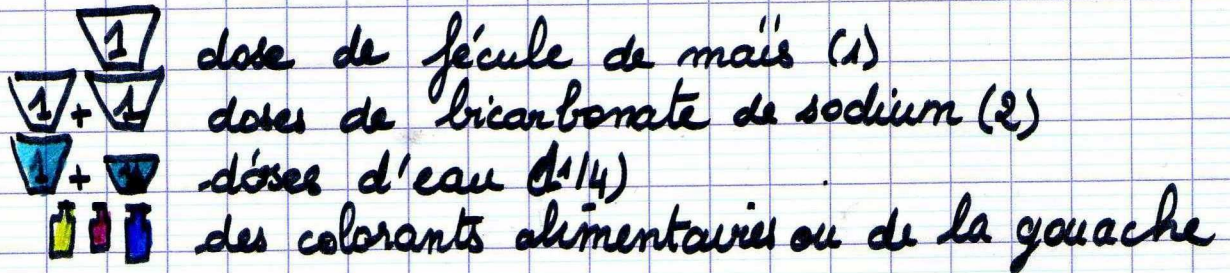 1 dose de fécule de maïs (1)
1 + 1 doses de bicarbonate de sodium (2)
1 + doses d'eau (1 1/4)
des colorants alimentaires ou de la gouache